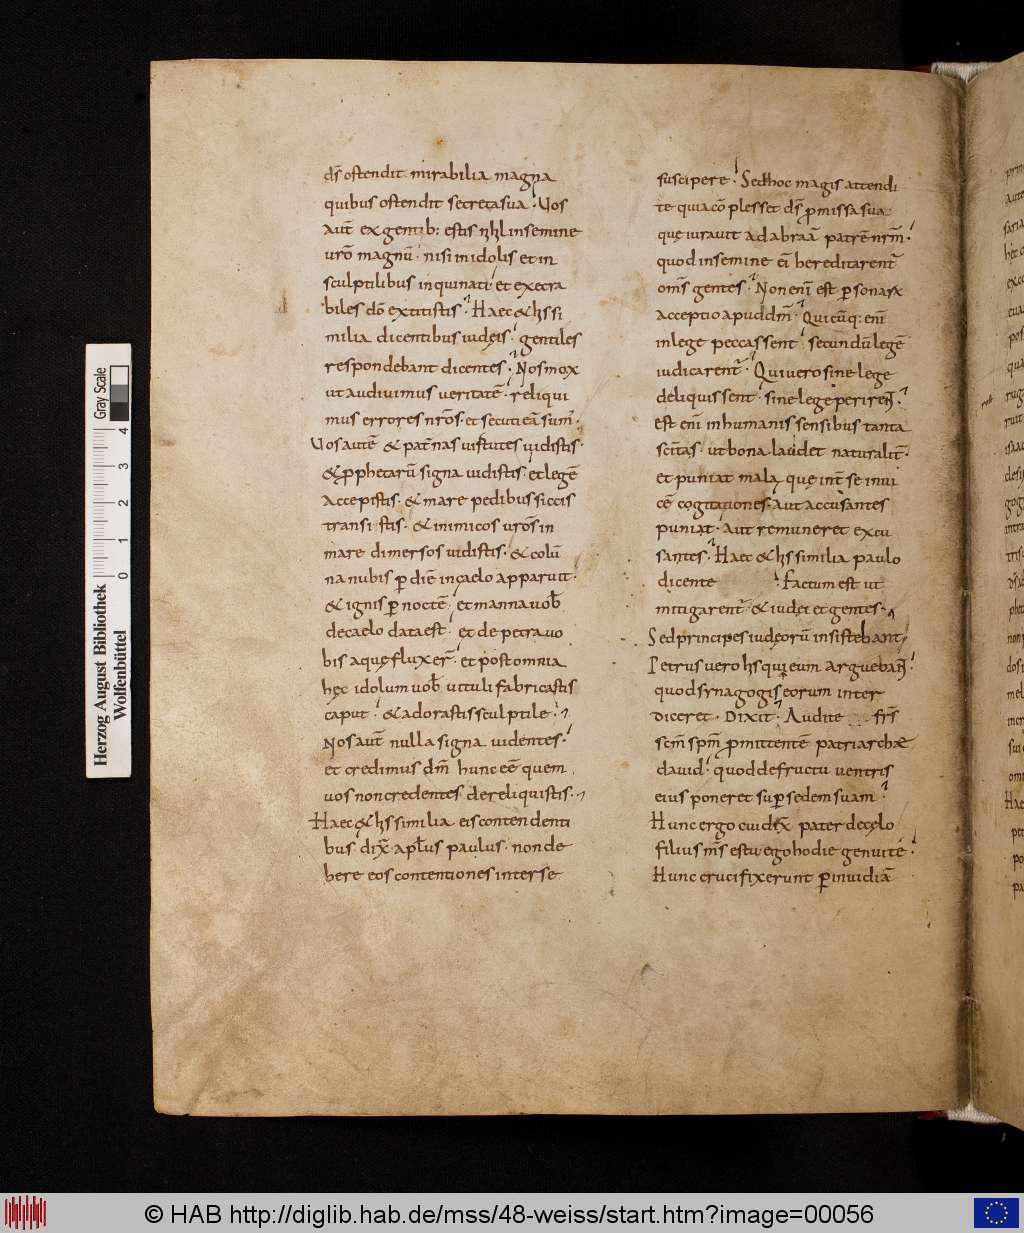 ds̄ ostendit mirabilia magna
quibus ostendit secreta sua. Vos
aut̄ ex gentib: estis nihil insemine
ur̄o magnū. nisi in idolis et in
sculptilibus inquinati et execra
biles dō extitistis. Haec & his si
milia dicentibus iudęis. gentiles
respondebant dicentes. Nos mox
ut audiuimus ueritatē. reliqui
mus errores nr̄os. et secuti eā sum̄.
Vos autē & pat̄nas uirtutes uidistis.
& p̱phetarū signa uidistis. et legē
accepistis. & mare pedibus siccis
transi stis. & inimicos ur̄os in
mare dimersos uidistis. & colū
na nubis p̱ diē in caelo apparuit.
& ignis p̱ noctē. et manna uob̄
de caelo data est. et de petra uo
bis aquę fluxer̄. et post omnia
hęc idolum uob̄ uituli fabricastis
caput. & adorastis sculptile.
Nos aut̄ nulla signa uidentes.
et credimus dm̄ hunc eē quem
uos non credentes dereliquistis.
Haec & his similia eis contendenti
bus dix̄ apl̄us paulus. non de
bere eos contentiones inter se
suscipere. Sed hoc magis attendi
te quia cō plesset ds̄ p̱missa sua
quę iurauit ad abraā patrē nr̄m.
quod in semine ei̅ hereditarent̄
om̄s gentes. Non eni̅ est p̱sonarx
acceptio apud dm̄. Quicūq: eni̅
in lege peccassent. secundū legē
iudicarent̄. Qui uero sine lege
deliquissent. sine lege periren̄t.
est eni̅ in humanis sensibus tanta
sci̅tas. ut bona laudet naturalit̄.
et puniat mala quę int̄ se inui
cē cogitationes. aut accusantes
puniat. aut remuneret excu
santes. Haec & his similia paulo
dicente . Factum est ut
mitigarent̄. & iudei et gentes.
Sed principes iudęorū insistebant
Petrus uero his qui eum arguebant̄.
quod synagogis eorum inter
diceret. Dixit. Audite fr̄s
scm̄ spm̄ p̱mittentē patriarchae
dauid. quod de fructu uentris
eius poneret sup̱ sedem suam.
Hunc ergo cui dix̄ pater de cęlo
filius m̄s es tu ego hodie genui tē.
Hunc crucifixerunt p̱ inuidiā
Herzog August Bibliothek
Wolfenbüttel
Gray Scale
0 1 2 3 4
© HAB http://diglib.hab.de/mss/48-weiss/start.htm?image=00056